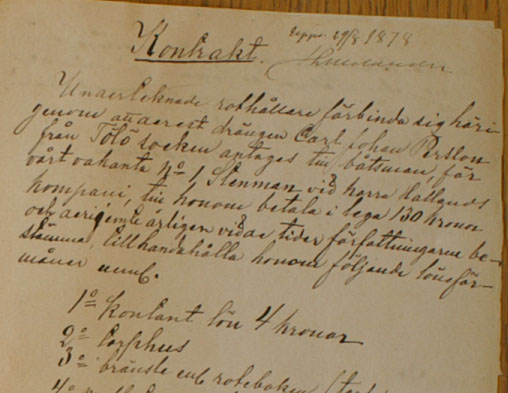 Uppv. 29/8 1878
Kontrakt.
Undertecknade rothållare förbinda sig häri-
genom att derest drängen Carl Johan Persson
från Tölö socken antages till båtsman, för
vårt vakanta No 1 Stenman vid norra Hallands
kompani, till honom betala i lega 130 kronor
och derjemte årligen vid de tider författningarne be-
stämma, tillhandahålla honom följande löneför-
måner neml.
1o kontant lön 4 kronor
2o torphus
3o bränsle enl. roteboken
4o